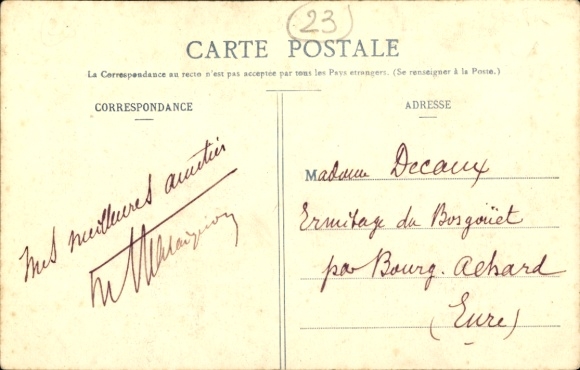 23
CARTE POSTALE
La Correspondance au recto n'est pas acceptée par tous les Pays étrangers. (Se renseigner à la Poste.)
CORRESPONDANCE
Mes meilleures amitiés
ADRESSE
Madame Decaux
Ermitage du Bosgoüet
par Bourg-Achard
(Eure)